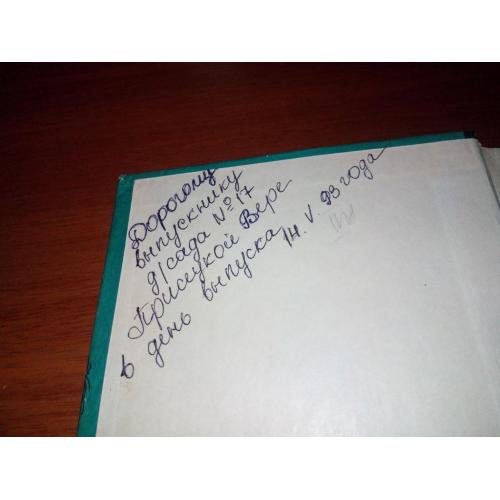 Дорогому
выпускнику
д/сада № 17
Присецкой Вере
в день выпуска 14. V. 93 года